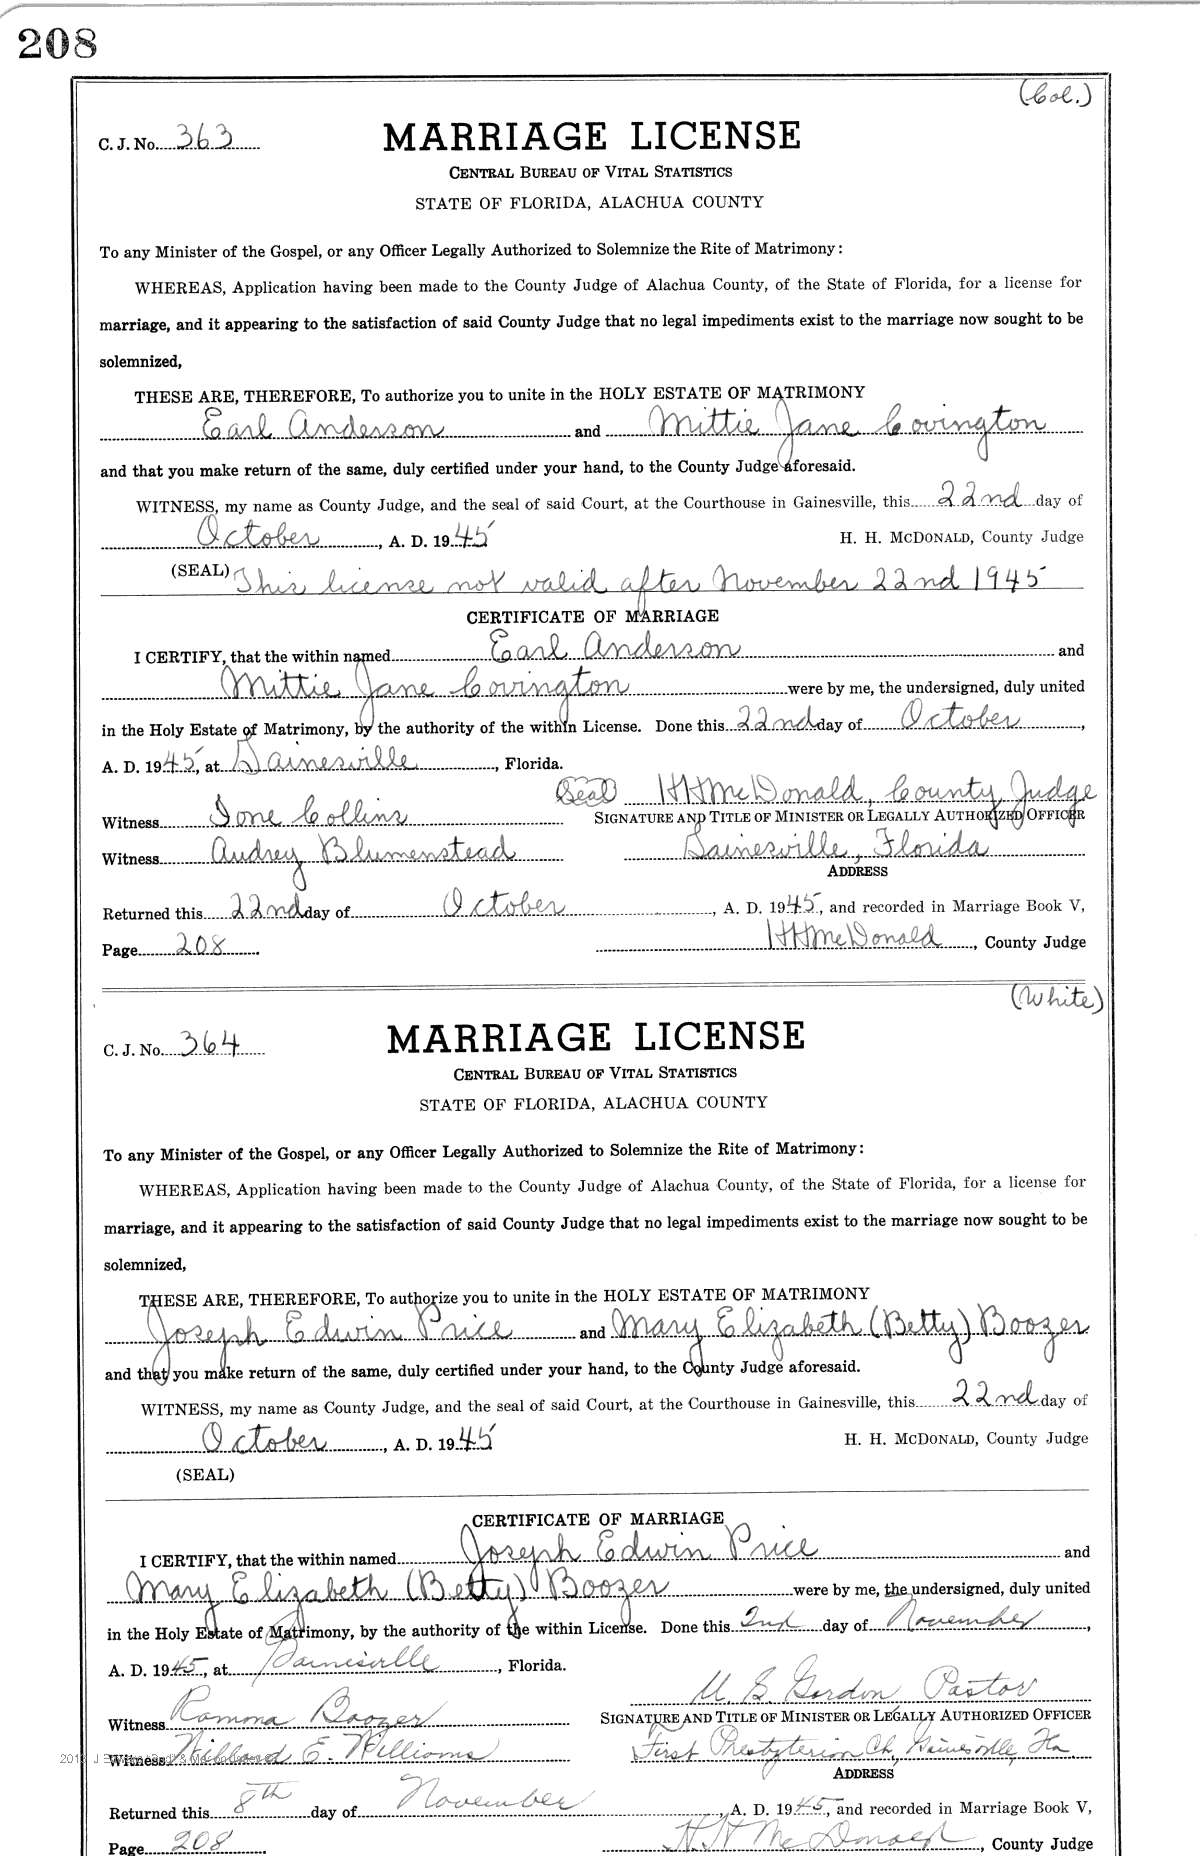 208
(Col.)
C. J. No. 363 MARRIAGE LICENSE
CENTRAL BUREAU OF VITAL STATISTICS
STATE OF FLORIDA, ALACHUA COUNTY
To any Minister of the Gospel, or any Officer Legally Authorized to Solemnize the Rite of Matrimony:
WHEREAS, Application having been made to the County Judge of Alachua County, of the State of Florida, for a license for
marriage, and it appearing to the satisfaction of said County Judge that no legal impediments exist to the marriage now sought to be
solemnized,
THESE ARE, THEREFORE, To authorize you to unite in the HOLY ESTATE OF MATRIMONY
Earl Anderson and Mittie Jane Covington
and that you make return of the same, duly certified under your hand, to the County Judge aforesaid.
WITNESS, my name as County Judge, and the seal of said Court, at the Courthouse in Gainesville, this 22nd day of
October, A. D. 1945 H. H. McDONALD, County Judge
(SEAL) This license not valid after November 22nd 1945
CERTIFICATE OF MARRIAGE
I CERTIFY, that the within named Earl Anderson and
Mittie Jane Covington were by me, the undersigned, duly united
in the Holy Estate of Matrimony, by the authority of the within License. Done this 22nd day of October,
A. D. 1945, at Gainesville, Florida.
Seal HHMcDonald, County Judge
Witness Ione Collins SIGNATURE AND TITLE OF MINISTER OR LEGALLY AUTHORIZED OFFICER
Witness Audrey Blumenstead Gainesville, Florida
ADDRESS
Returned this 22nd day of October, A. D. 1945, and recorded in Marriage Book V,
Page 208 HHMcDonald, County Judge
(White)
C. J. No. 364 MARRIAGE LICENSE
CENTRAL BUREAU OF VITAL STATISTICS
STATE OF FLORIDA, ALACHUA COUNTY
To any Minister of the Gospel, or any Officer Legally Authorized to Solemnize the Rite of Matrimony:
WHEREAS, Application having been made to the County Judge of Alachua County, of the State of Florida, for a license for
marriage, and it appearing to the satisfaction of said County Judge that no legal impediments exist to the marriage now sought to be
solemnized,
THESE ARE, THEREFORE, To authorize you to unite in the HOLY ESTATE OF MATRIMONY
Joseph Edwin Price and Mary Elizabeth (Betty) Boozer
and that you make return of the same, duly certified under your hand, to the County Judge aforesaid.
WITNESS, my name as County Judge, and the seal of said Court, at the Courthouse in Gainesville, this 22nd day of
October, A. D. 1945 H. H. McDONALD, County Judge
(SEAL)
CERTIFICATE OF MARRIAGE
I CERTIFY, that the within named Joseph Edwin Price and
Mary Elizabeth (Betty) Boozer were by me, the undersigned, duly united
in the Holy Estate of Matrimony, by the authority of the within License. Done this 2nd day of November,
A. D. 1945, at Gainesville, Florida.
U. S. Gordon, Pastor
Witness Ramona Boozer SIGNATURE AND TITLE OF MINISTER OR LEGALLY AUTHORIZED OFFICER
Witness Willard E. Williams First Presbyterian Ch., Gainesville, Fla
ADDRESS
Returned this 8th day of November, A. D. 1945, and recorded in Marriage Book V,
Page 208 H. H McDonald, County Judge